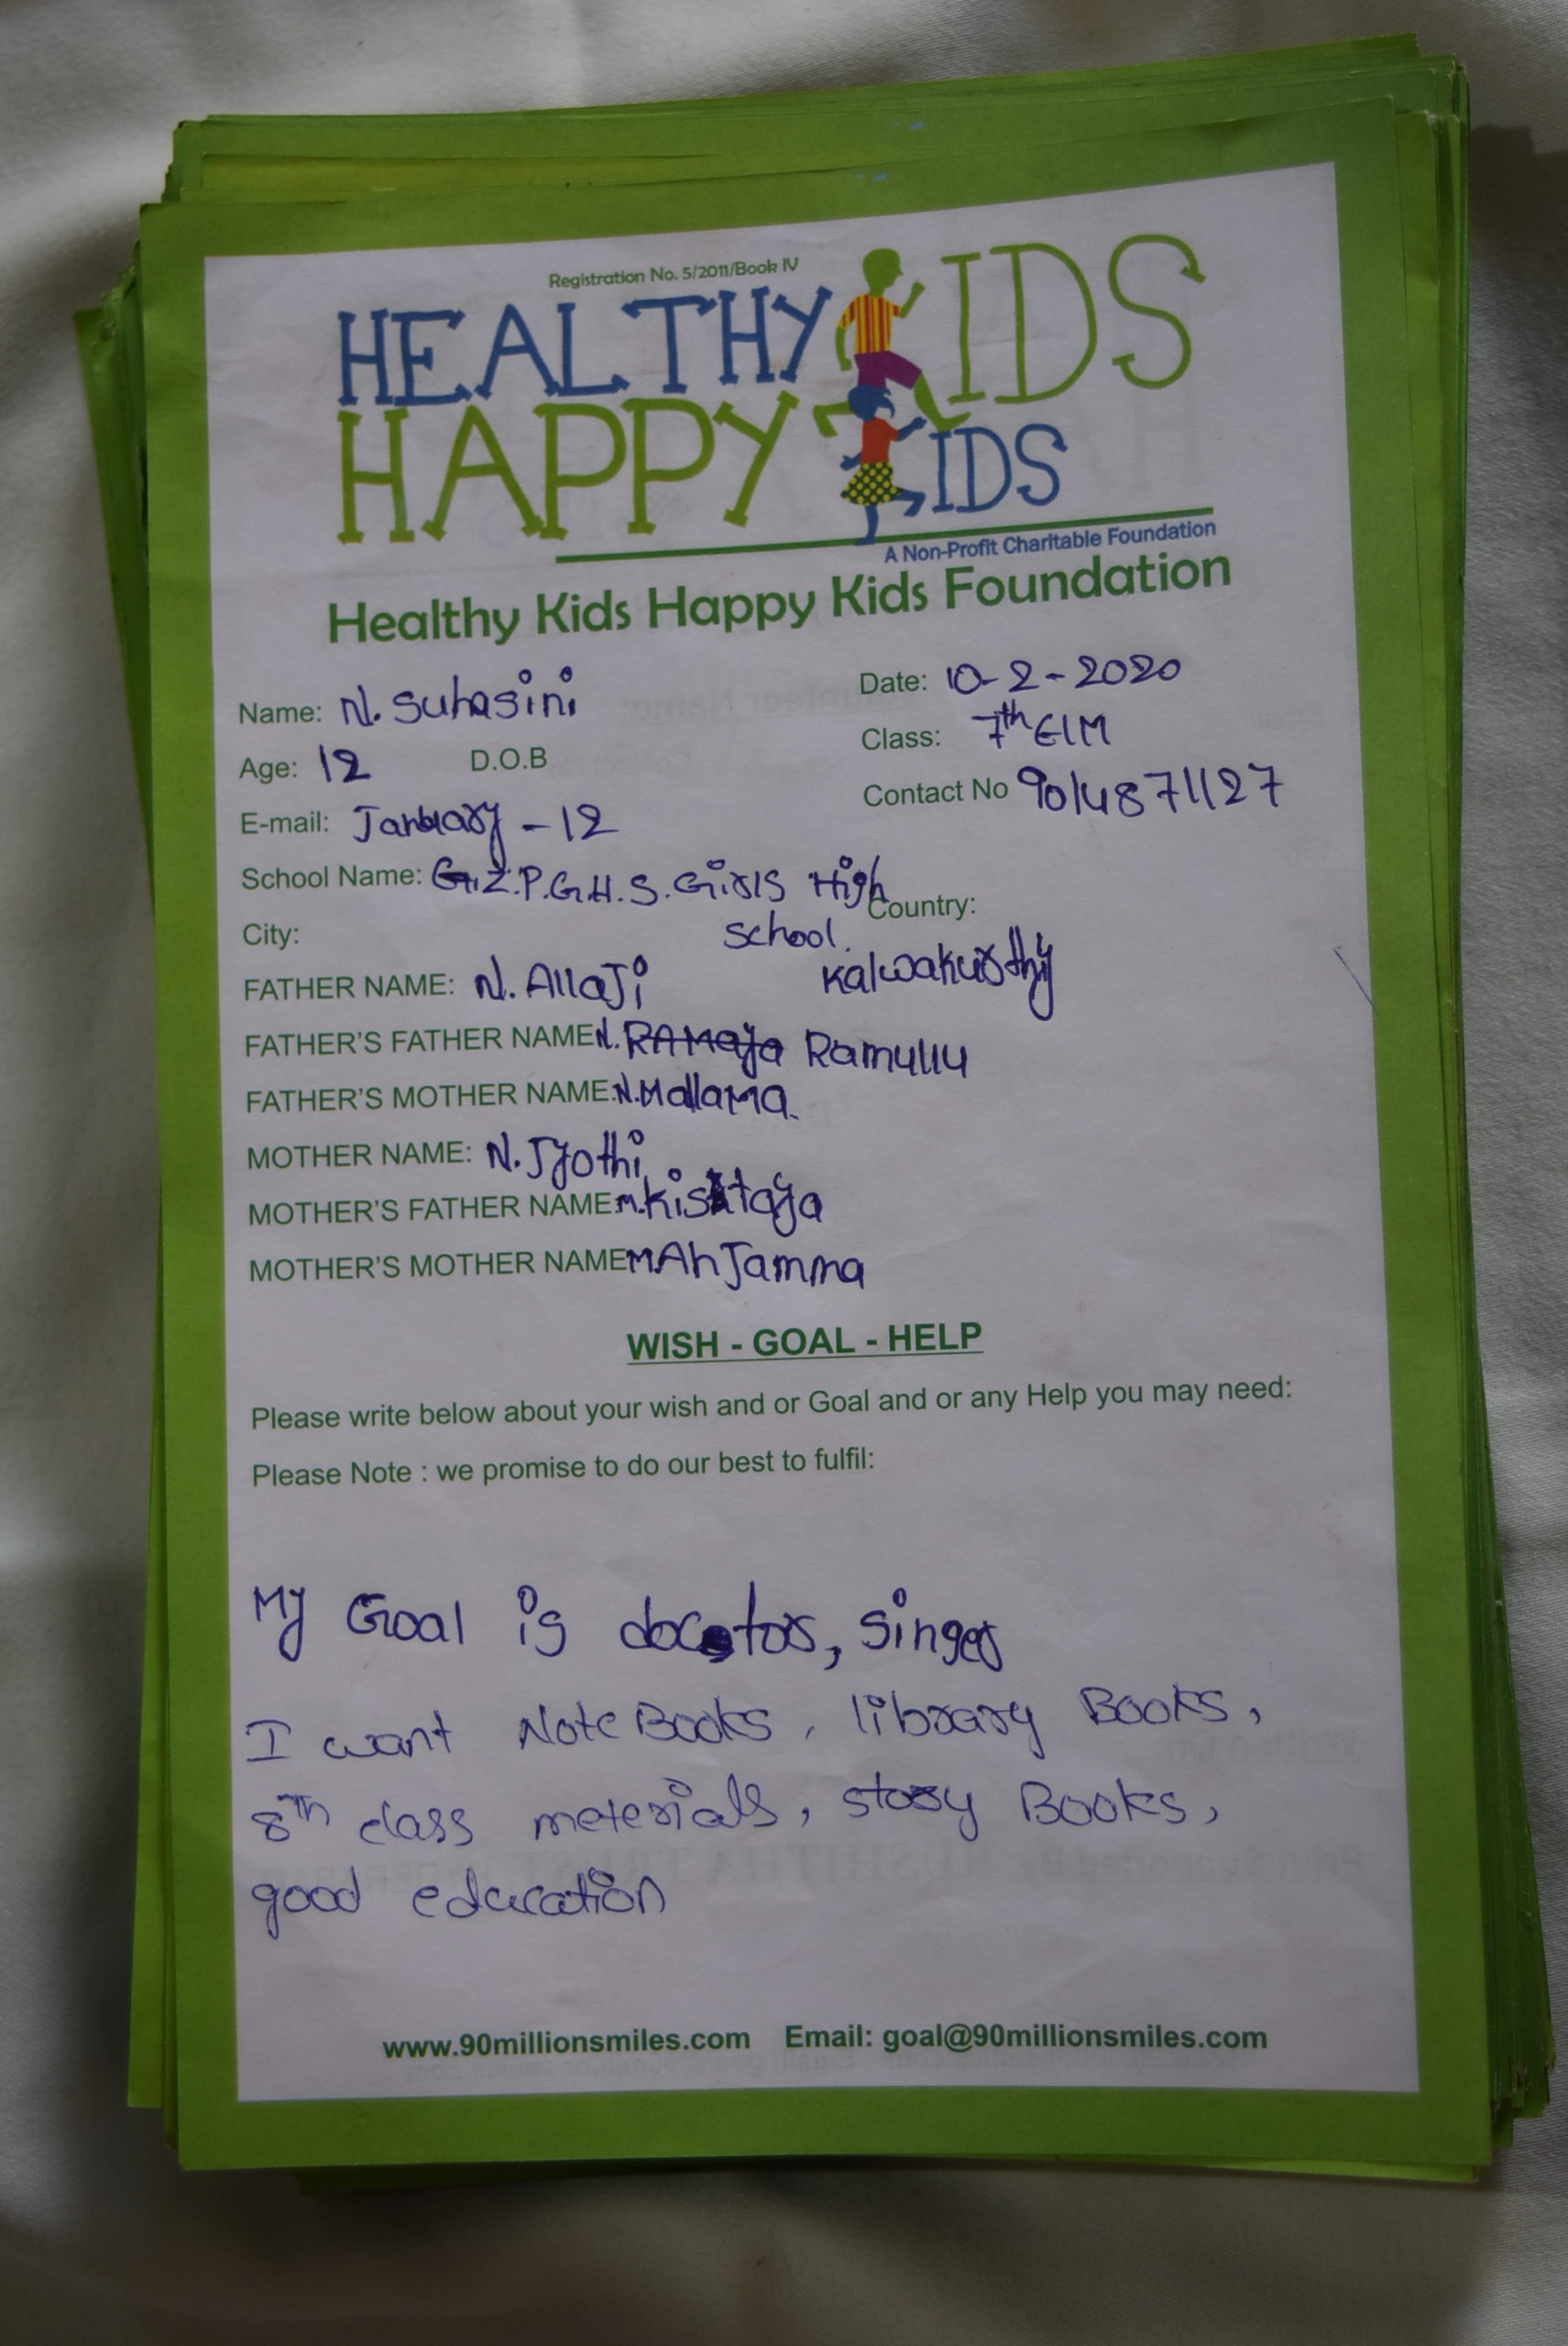 Registration No. 5/2011/Book IV
HEALTHY KIDS
HAPPY KIDS
A Non-Profit Charitable Foundation
Healthy Kids Happy Kids Foundation
Name: N. Suhasini Date: 10-2-2020
Age: 12 D.O.B Class: 7th E/M
E-mail: January - 12 Contact No 9014871127
School Name: G.Z.P.G.H.S. Girls High
City: School. Country:
FATHER NAME: N. AllaJi Kalwakurthy
FATHER'S FATHER NAME: N. RAMaya Ramullu
FATHER'S MOTHER NAME: N. Mallama.
MOTHER NAME: N. Jyothi
MOTHER'S FATHER NAME: M. Kistaya
MOTHER'S MOTHER NAME M. AnJamma
WISH - GOAL - HELP
Please write below about your wish and or Goal and or any Help you may need:
Please Note : we promise to do our best to fulfil:
My Goal is doctor, singer
I want Note Books, library Books,
8th class meterials, story Books,
good education
www.90millionsmiles.com Email: goal@90millionsmiles.com